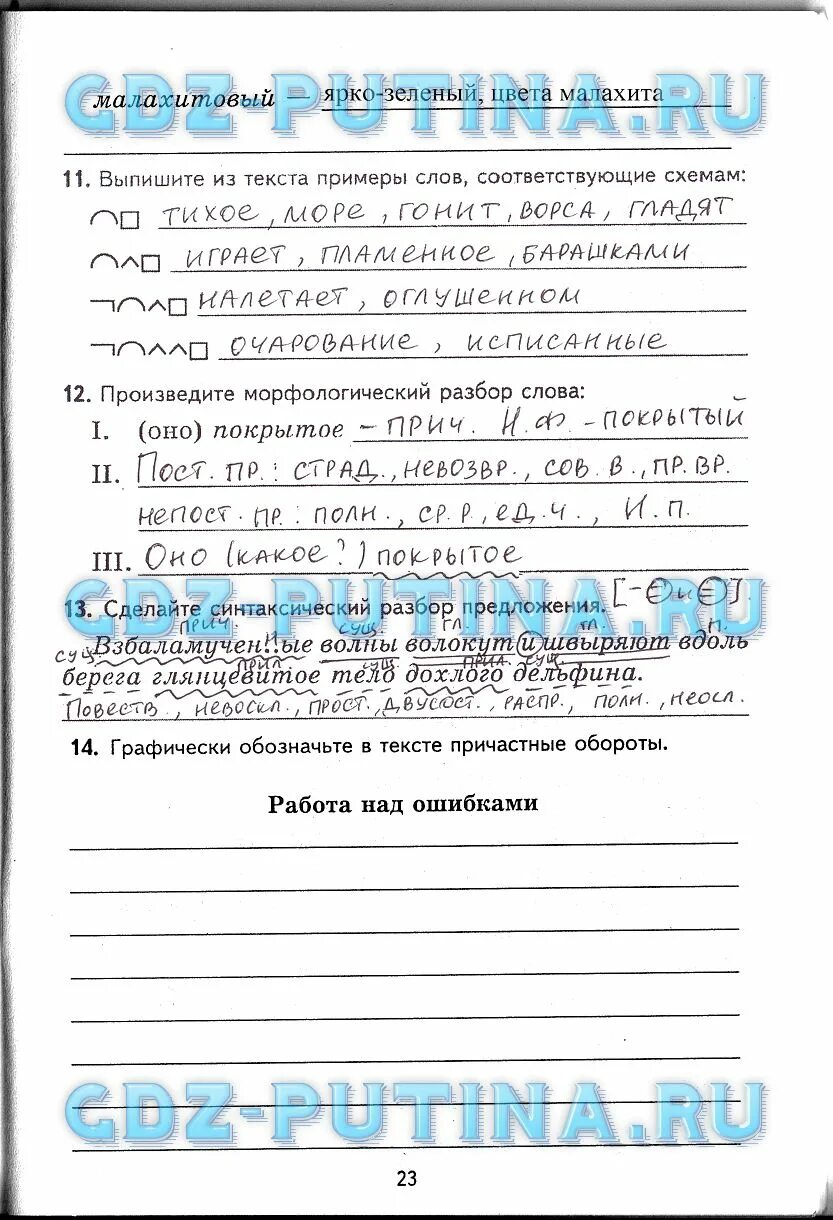 GDZ-PUTINA.RU
малахитовый — ярко-зеленый, цвета малахита
11. Выпишите из текста примеры слов, соответствующие схемам:
ТИХОЕ, МОРЕ, ГОНИТ, ВОРСА, ГЛАДЯТ
ИГРАЕТ, ПЛАМЕННОЕ, БАРАШКАМИ
НАЛЕТАЕТ, ОГЛУШЕННОМ
ОЧАРОВАНИЕ, ИСПИСАННЫЕ
12. Произведите морфологический разбор слова:
I. (оно) покрытое – ПРИЧ. Н.Ф. – ПОКРЫТЫЙ
II. ПОСТ. ПР.: СТРАД., НЕВОЗВР., СОВ. В., ПР. ВР.
НЕПОСТ. ПР.: ПОЛН., СР. Р., ЕД. Ч., И. П.
III. ОНО (КАКОЕ?) ПОКРЫТОЕ
GDZ-PUTINA.RU
13. Сделайте синтаксический разбор предложения. [– = и =].
ПРИЧ. СУЩ. ГЛ. ГЛ. П.
Взбаламученные волны волокут и швыряют вдоль
СУЩ. ПРИЛ. СУЩ. ПРИЛ. СУЩ.
берега глянцевитое тело дохлого дельфина.
ПОВЕСТВ., НЕВОСКЛ., ПРОСТ., ДВУСОСТ., РАСПР., ПОЛН., НЕОСЛ.
14. Графически обозначьте в тексте причастные обороты.
Работа над ошибками
GDZ-PUTINA.RU
23